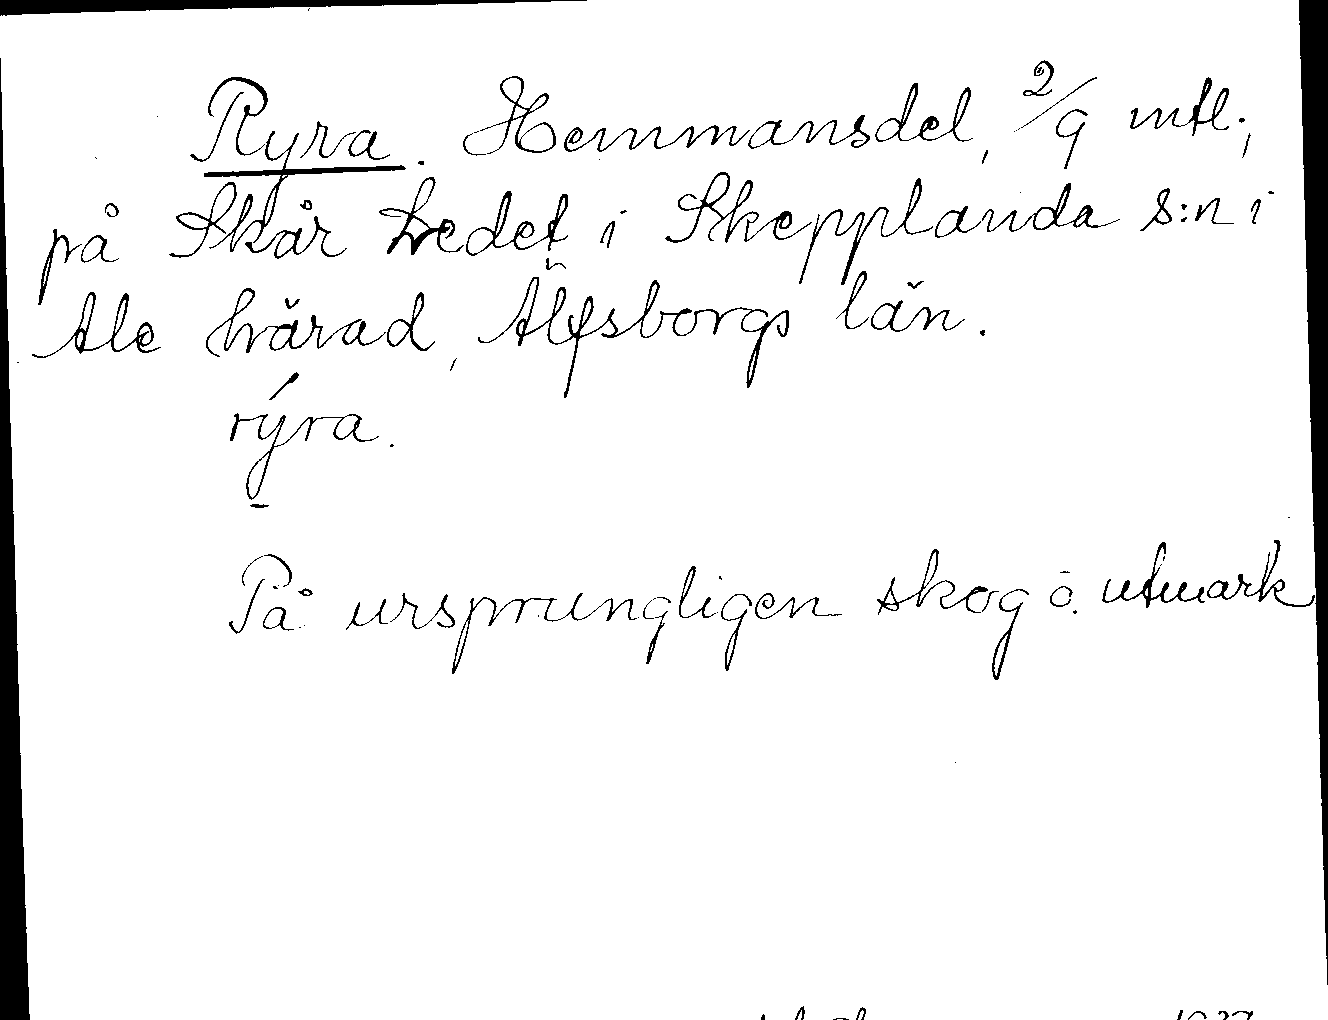 Ryra. Hemmansdel, 2/9 mtl.,
på Skår Ledet i Skepplanda s:n i
Ale härad, Älfsborgs län.
rýra.
På ursprungligen skog o. utmark